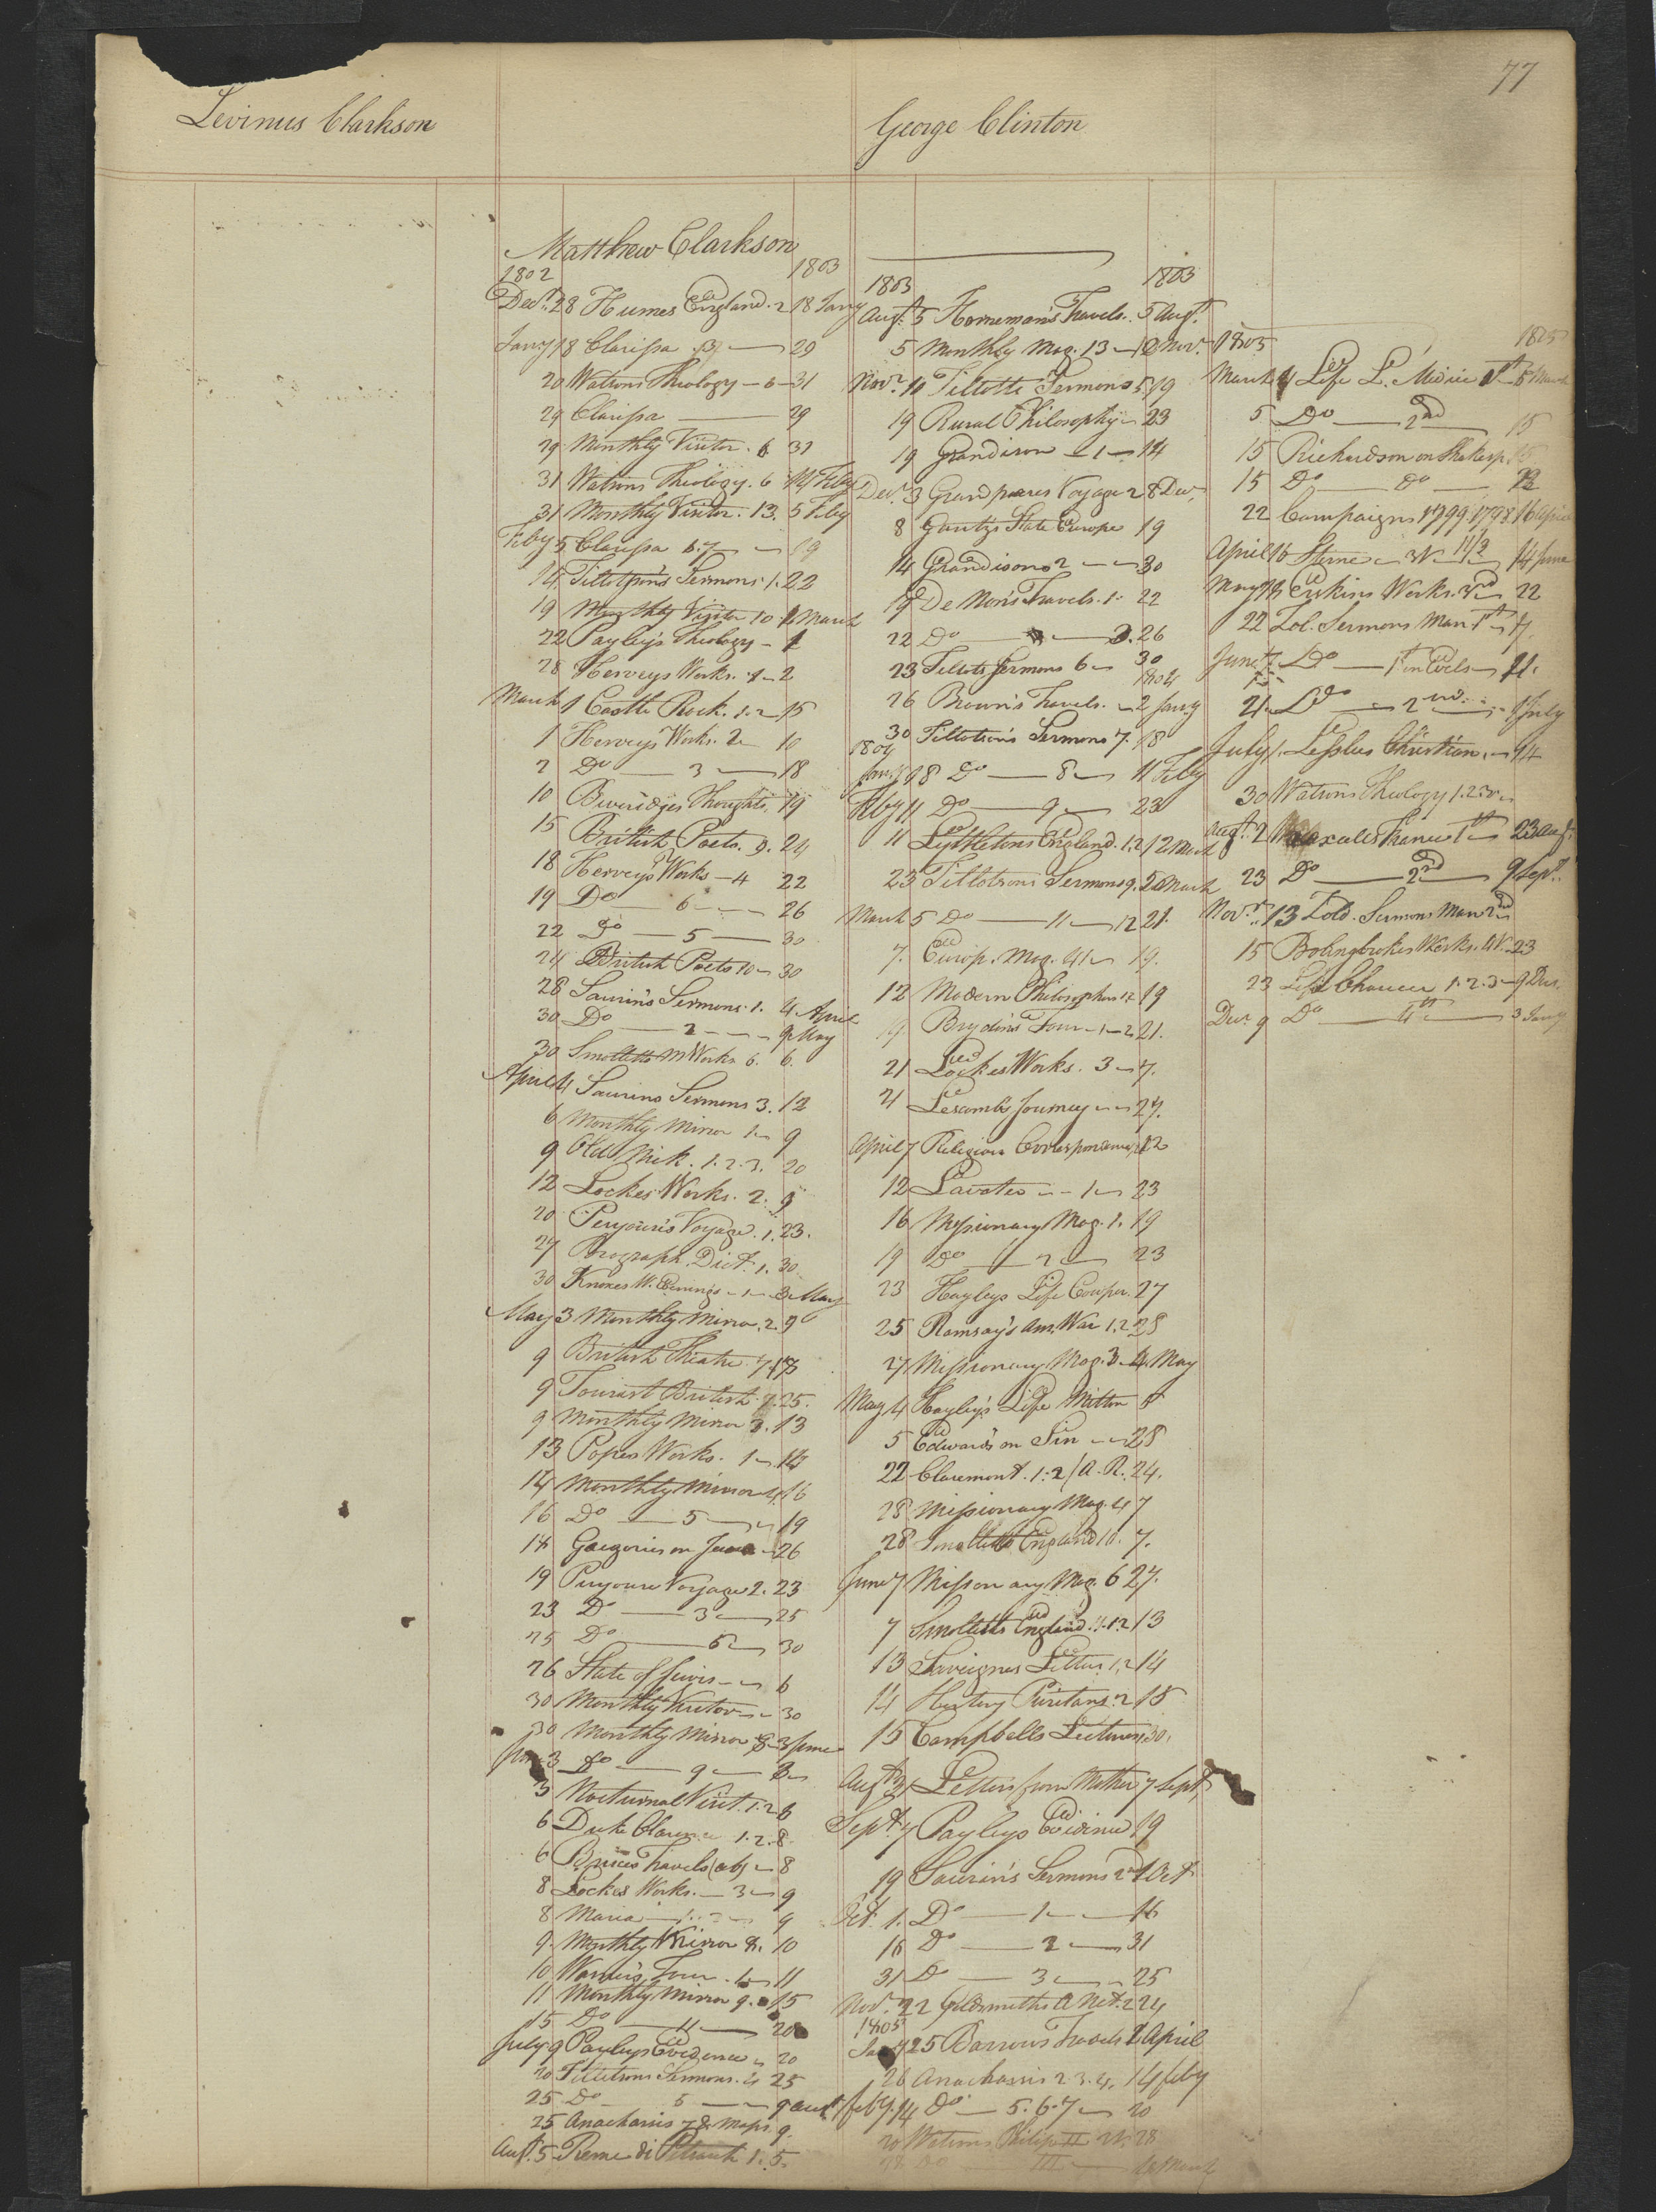 77
Levinus Clarkson
George Clinton
Matthew Clarkson
1802 1803
Decr. 28 Humes England. 2 18 Jany
Jany 18 Clarissa. 3 29
20 Watsons Theology - 6 - 31
29 Clarissa 29
29 Monthly Visitor. 6 31
31 Watsons Theology. 6 14 Feby
31 Monthly Visitor. 13. 5 Feby
Feby 5 Clarissa 6.7 19
14 Tillotson's Sermons. 1. 22
19 Monthly Visitor 10 March
22 Payley's Theology - 1
28 Herveys Works. 1 - 2
March 1 Castle Rock. 1.2 15
1 Herveys Works. 2 10
2 Do 3 18
10 Beveridges Thoughts. 19
15 British Poets. 9. 24
18 Herveys Works - 4 22
19 Do 6 26
22 Do 5 30
24 British Poets 10 30
28 Saurin's Sermons. 1. 4 April
30 Do 2 9 May
30 Smolletts M Works 6. 6.
April 4 Saurins Sermons 3. 12
6 Monthly Mirror 1 9
9 Old Nick. 1.2.3. 20
12 Lockes Works. 2. 9
20 Voyage. 1. 23.
27 Biograph. Dict. 1. 30
30 Knoxes W. Evenings - 1 - 3 May
May 3 Monthly Mirror. 2. 9
9 British Theatre.
9 Tourist British. 7. 25.
9 Monthly Mirror 3. 13
13 Popes Works. 1 14
14 Monthly Mirror 4. 16
16 Do 5 19
18 Gregories on 26
19 Voyage 2. 23
23 Do 3 25
25 Do 5 30
26 State of Jewis 6
30 Monthly Visitor 30
30 Monthly Mirror 8 3 June
June 3 Do 9
3 Nocturnal Visit. 1.2 6
6 Duke Clarence 1.2. 8
6 Bruces Travels (ab) 8
8 Lockes Works. - 3 9
8 Maria 1. 2 9
9. Monthly Mirror 8. 10
10 Warner's Tour. 1 11
11 Monthly Mirror 9. 15
15 Do 11 20
July 9 Payleys Evidence 20
20 Tillotsons Sermons. 4 25
25 Do 5 9 Augt
25 Anacharsis & Maps. 9.
Augt. 5 1. 5.
1803 1803
Augt. 5 Horneman's Travels. 5 Augt.
5 Monthly Mag. 13 12 Novr.
Novr. 10 Tillotts Sermons 5. 19
19 Rural Philosophy 23
19 Grandison - 1 - 14
Decr. 3 Grandpres Voyage 2 8 Decr.
8 Gentz's State Europe 19
14 Grandison 2 30
19 De Non's Travels. 1. 22
22 Do 2. 26
23 Tillots Sermons 6 30
1804
26 Brown's Travels. 2 Jany
30 Tillotson's Sermons 7. 18
1804
Jany 18 Do 8 11 Feby
Feby 11 Do 9 23
11 Lyttletons England. 1.2 12 March
23 Tillotsons Sermons 9. 5 March
March 5 Do 11 12 21.
7. Europ. Mag. 41 19.
12 Modern Philosophers 1.2 19
19 Brydon's Tour - 1 - 2 21.
21 Lockes Works. 3 7.
21 Journey 27.
April 7 Religious Correspondence 12
12 Lavater - 1 23
16 Missionary Mag. 1. 19
19 Do 2 23
23 Hayleys Life Cowper. 27
25 Ramsay's Am. War 1.2 28
27 Missionary Mag. 3 4 May
May 4 Hayley's Life Milton 5
5 Edwards on Sin 28
22 Claremont. 1.2 / A. R. 24.
28 Missionary Mag. 4 7
28 Smolletts England 10. 7.
June 7 Missionary Mag. 6 27.
7 Smolletts England. 11.12 13
13 Letters 1.2 14
14 History Puritans. 2 15
15 Campbells Lectures 30.
Augt. 31 Letters from Mother 7 Sept.
Sept. 7 Payleys Evidence 19
19 Saurin's Sermons 2nd 1 Oct
Oct. 1. Do 1 16
16 Do 2 31
31 Do 3 25
Novr. 22 Goldsmiths A Nat. 2 24
1805
Jany 25 Barrows Travels 2 April
26 Anacharsis 2.3.4. 14 feby
feby. 14 Do 5.6.7 20
20 Watsons Philip II 28
28 Do III March
1805 1805
March 4 Life L. Medici 1st 5 March
5 Do 2nd 15
15 Richardson on Shakesp. 15
15 Do Do 22
22 Campaigns 1799. 1798. 16 April
April 16 Sterne 14 June
May Erskins Works. 3rd 22
22 Zol. Sermons Man 1st 7.
June 7. Do 1st on Evils 21.
21. Do 2nd 1 July
July 1. Christian. 14
30 Watsons Theology 1.2
Augt. 2 Wraxalls France 1st 23 Augt.
23 Do 2nd 9 Sept.
Novr. 13 Zold. Sermons Man 2nd
15 Bolingbrokes Works. 23
23 Life Chaucer 1.2.3 9 Decr.
Decr 9 Do 4th 3 Jany